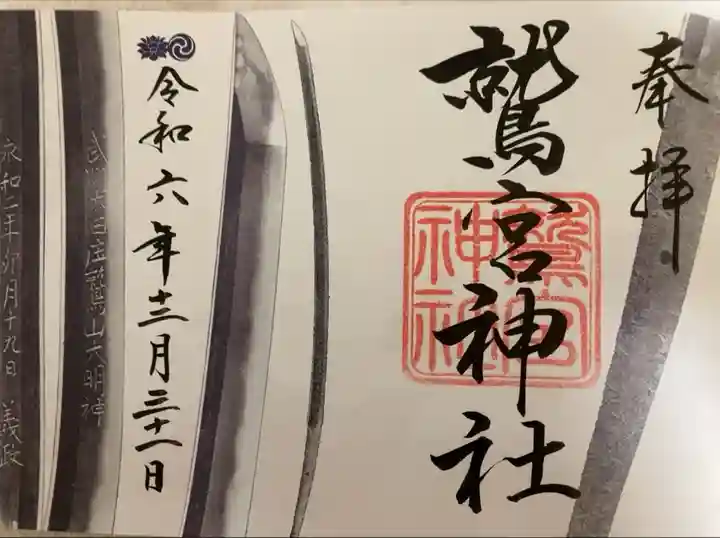 奉拝
鷲宮神社
鷲宮
神社
令和六年十二月三十一日
武州太田庄鷲山大明神
永和二年卯月十九日 義政